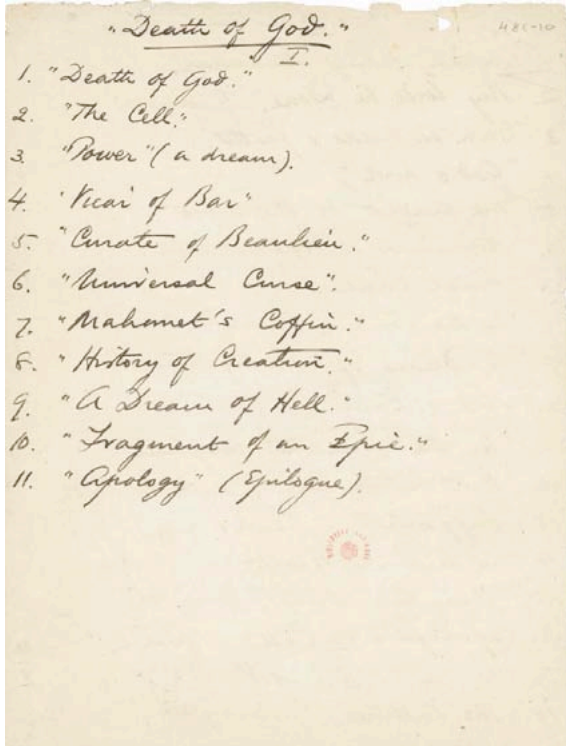 "Death of God."
48E-10
I.
1. "Death of God."
2. "The Cell."
3. "Power" (a dream).
4. "Vicar of Bar"
5. "Curate of Beaulieu."
6. "Universal Curse".
7. "Mahomet's Coffin."
8. "History of Creation."
9. "A Dream of Hell."
10. "Fragment of an Epic."
11. "Apology" (Epilogue).